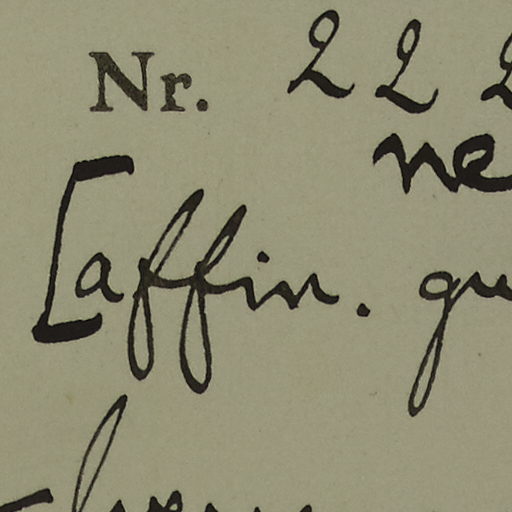 Nr. 222
ne
[affin. gu